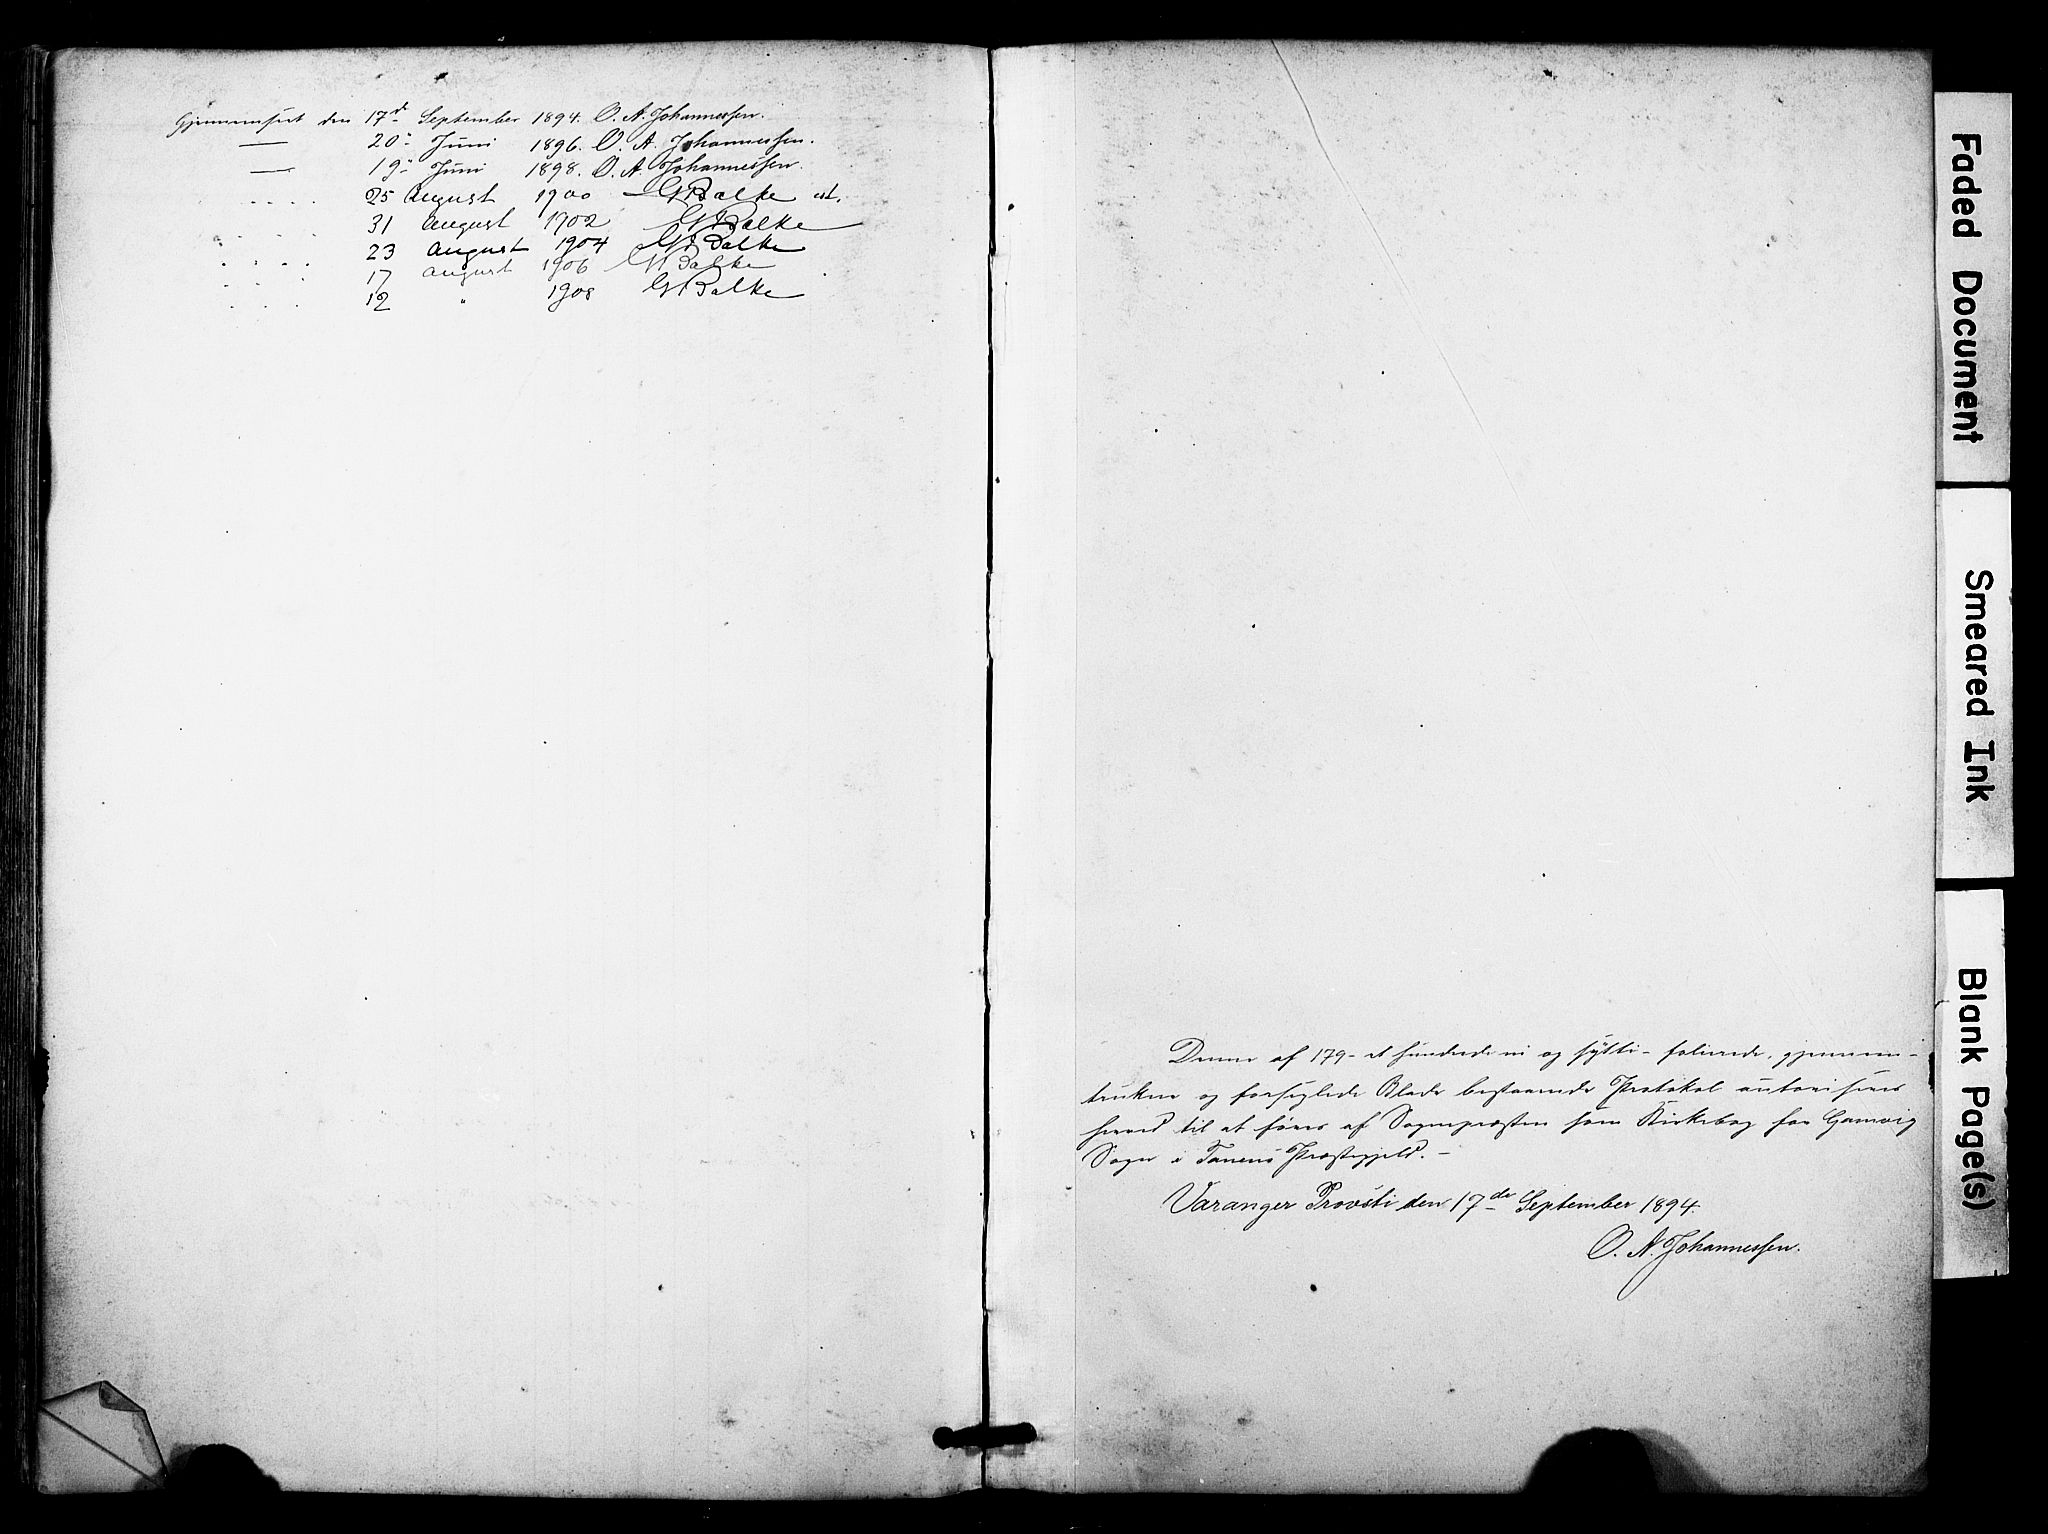 Gjennemseet den 17de September 1894. O. A. Johannessen.
— 20de Juni 1896. O. A. Johannessen.
— 19de Juni 1898. O. A. Johannessen.
. . . . 25 August 1900 G Balke cst.
. . . . 31 August 1902 G Balke
. . . . 23 August 1904 G Balke
. . . . 17 August 1906 G Balke
. . . . 12 " 1908 G Balke
Denne af 179 - et hundrede ni og sytti - folierede, gjennem-
trukne og forseglede Blade bestaaende Protokol autoriseres
herved til at føres af Sognepræsten som Kirkebog for Gamvig
Sogn i Tanens Præstegjeld. —
Varanger Provsti den 17de September 1894.
O. A. Johannessen.
Faded Document
Smeared Ink
Blank Page(s)